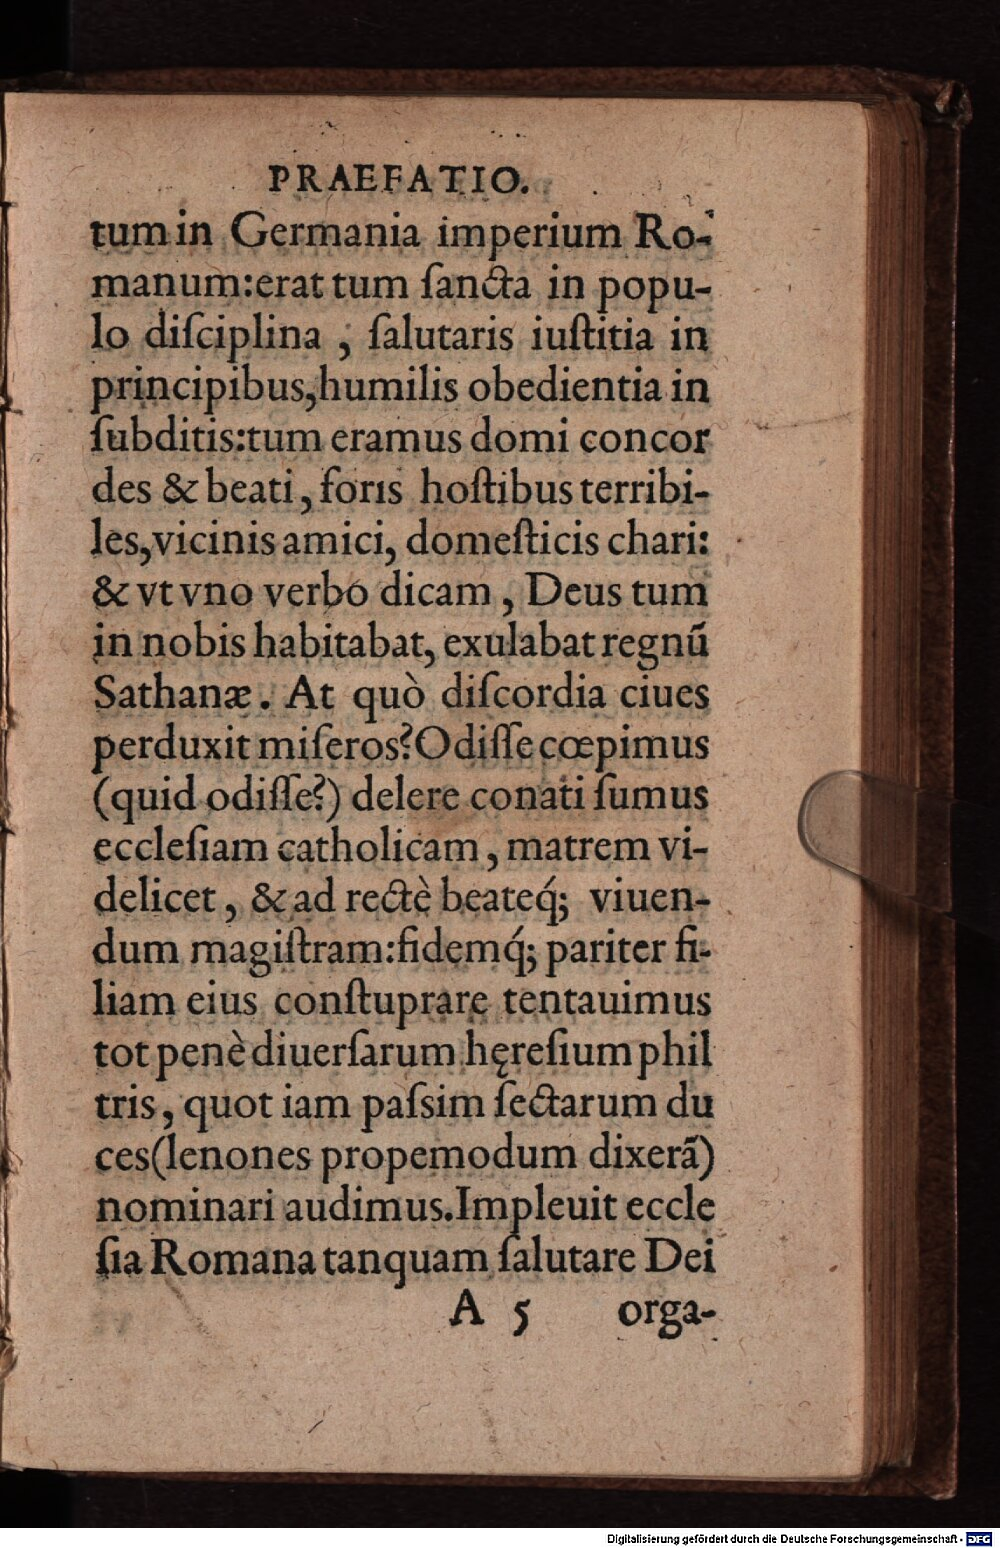 PRAEFATIO.
tum in Germania imperium Ro-
manum:erat tum ſancta in popu-
lo diſciplina , ſalutaris iuſtitia in
principibus,humilis obedientia in
ſubditis:tum eramus domi concor
des & beati, foris hoſtibus terribi-
les,vicinis amici, domeſticis chari:
& vt vno verbo dicam , Deus tum
in nobis habitabat, exulabat regnũ
Sathanæ. At quò diſcordia ciues
perduxit miſeros?Odiſſe cœpimus
(quid odiſſe?) delere conati ſumus
eccleſiam catholicam, matrem vi-
delicet , & ad rectè beateq́; viuen-
dum magiſtram:fidemq́; pariter fi-
liam eius conſtuprare tentauimus
tot penè diuerſarum hęreſium phil
tris, quot iam paſsim ſectarum du
ces(lenones propemodum dixerã)
nominari audimus.Impleuit eccle
ſia Romana tanquam ſalutare Dei
A 5 orga-
Digitalisierung gefördert durch die Deutsche Forschungsgemeinschaft - DFG